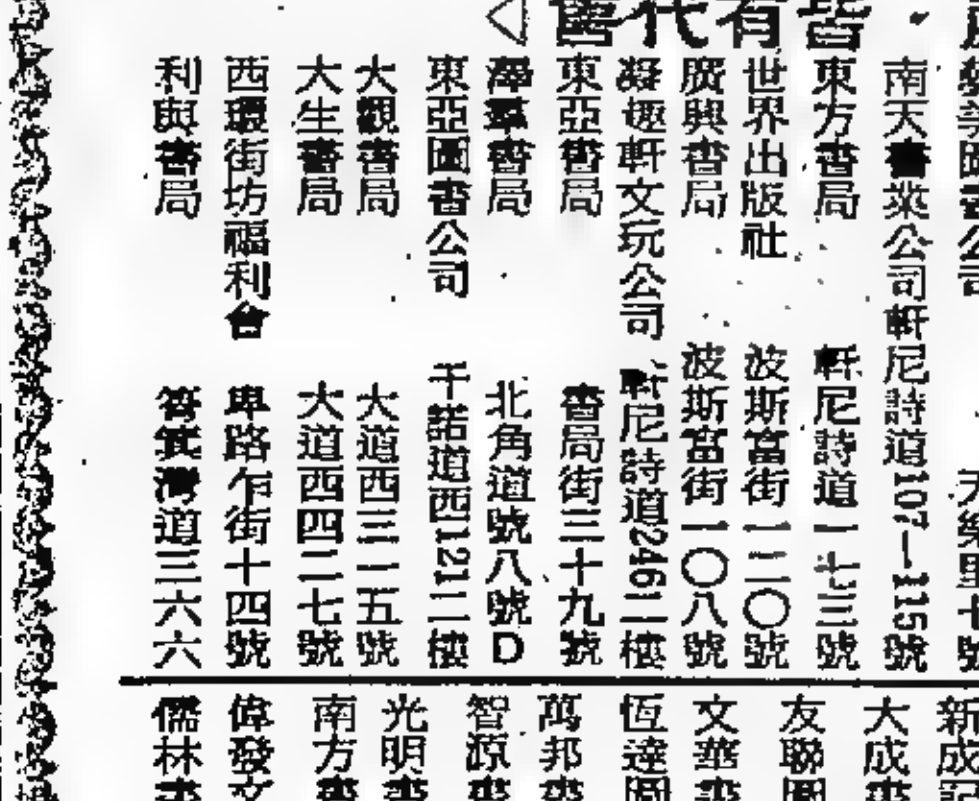 皆有代售
圖書公司 天樂里十號
南天書業公司軒尼詩道107—115號
東方書局 軒尼詩道一七三號
世界出版社 波斯富街一二〇號
廣興書局 波斯富街一〇八號
凝趣軒文玩公司 軒尼詩道246二樓
東亞書局 書局街三十九號
羣書局 北角道號八號D
東亞圖書公司 干諾道西121二樓
大觀書局 大道西三一五號
大生書局 大道西四二七號
西環街坊福利會 卑路乍街十四號
利興書局 筲箕灣道三六六
新成記
大成書
友聯圖
文華書
恆達圖
萬邦書
智源書
光明書
南方書
偉發文
儒林書